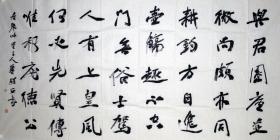 與君園廬並
微尚頗亦同
耕釣方自逸
壺觴趣不空
門無俗士駕
人有上皇風
何處先賢傳
惟稱龐德公